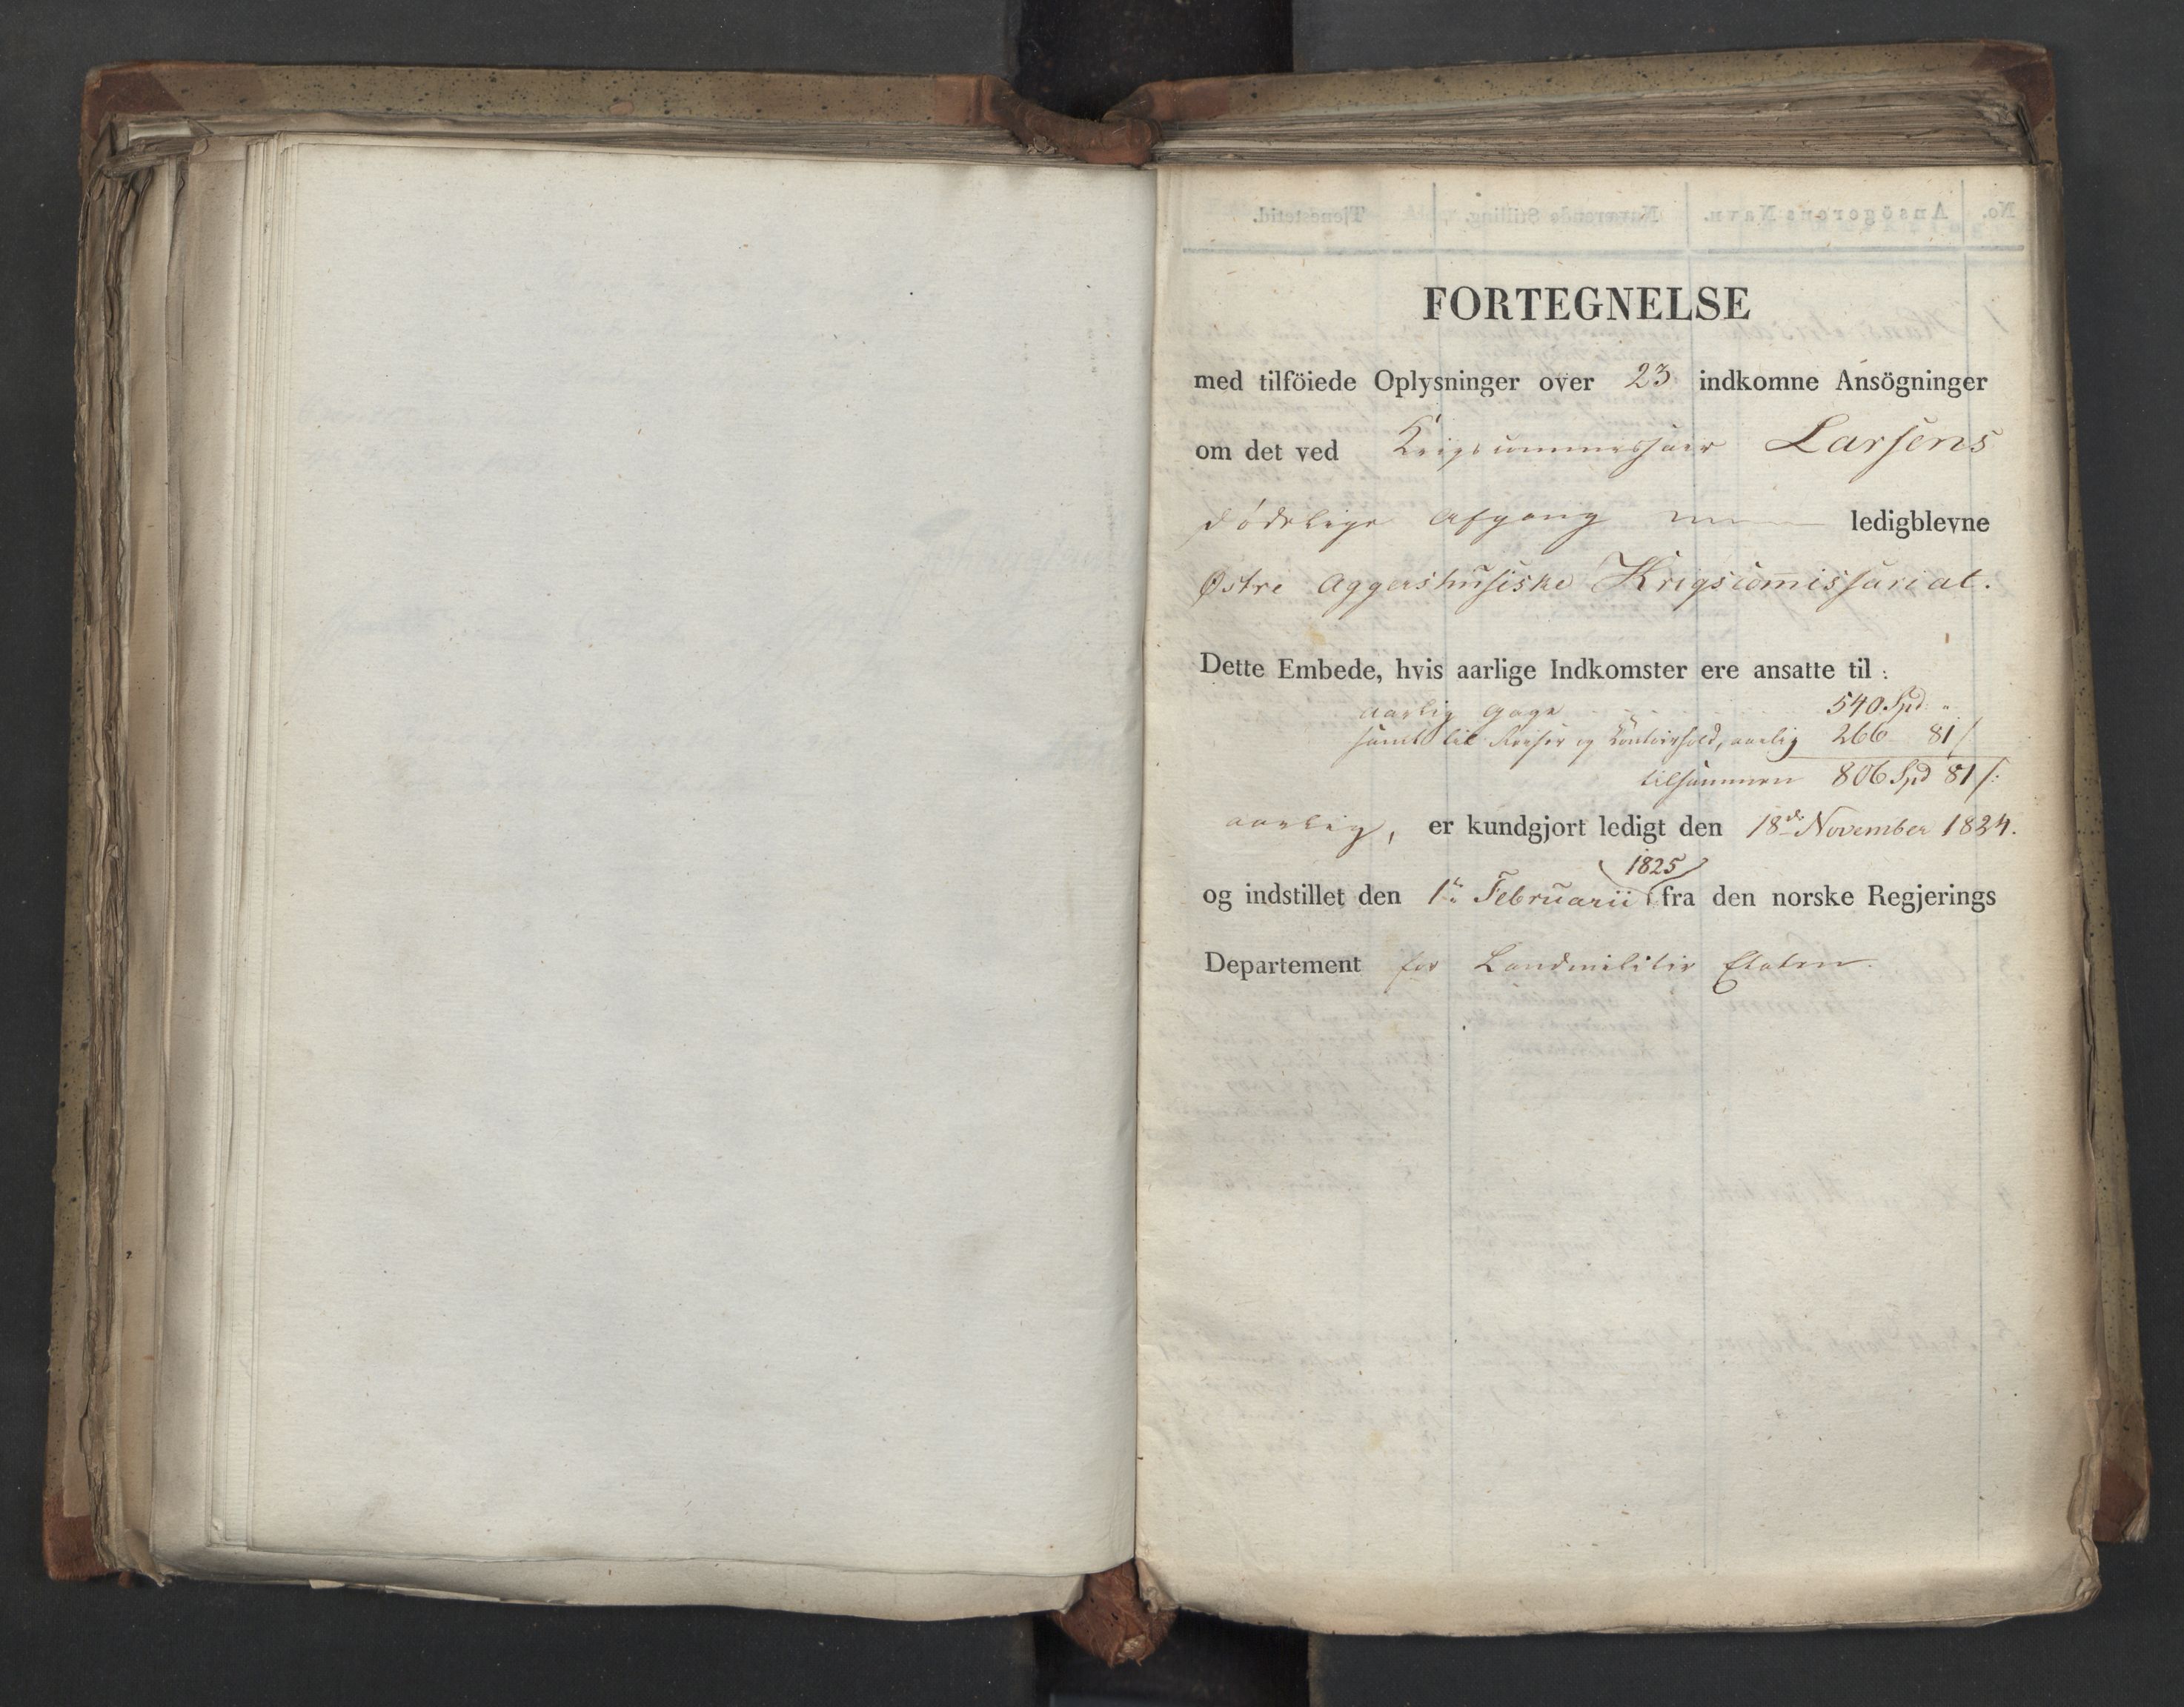 FORTEGNELSE
med tilföiede Oplysninger over 23 indkomne Ansögninger
om det ved Krigscommissair Larsens
dødelige Afgang ledigblevne
Østre Aggershusiske Krigscom̄issariat.
Dette Embede, hvis aarlige Indkomster ere ansatte til :
aarlig Gage 540 Spd "
samt til Reiser og Contoirhold, aarlig 266 81 ſ
tilsammen 806 Spd 81 ſ:
aarlig, er kundgjort ledigt den 18de November 1824.
1825
og indstillet den 1te Februarii fra den norske Regjerings
Departement for Landmilitær Etaten.